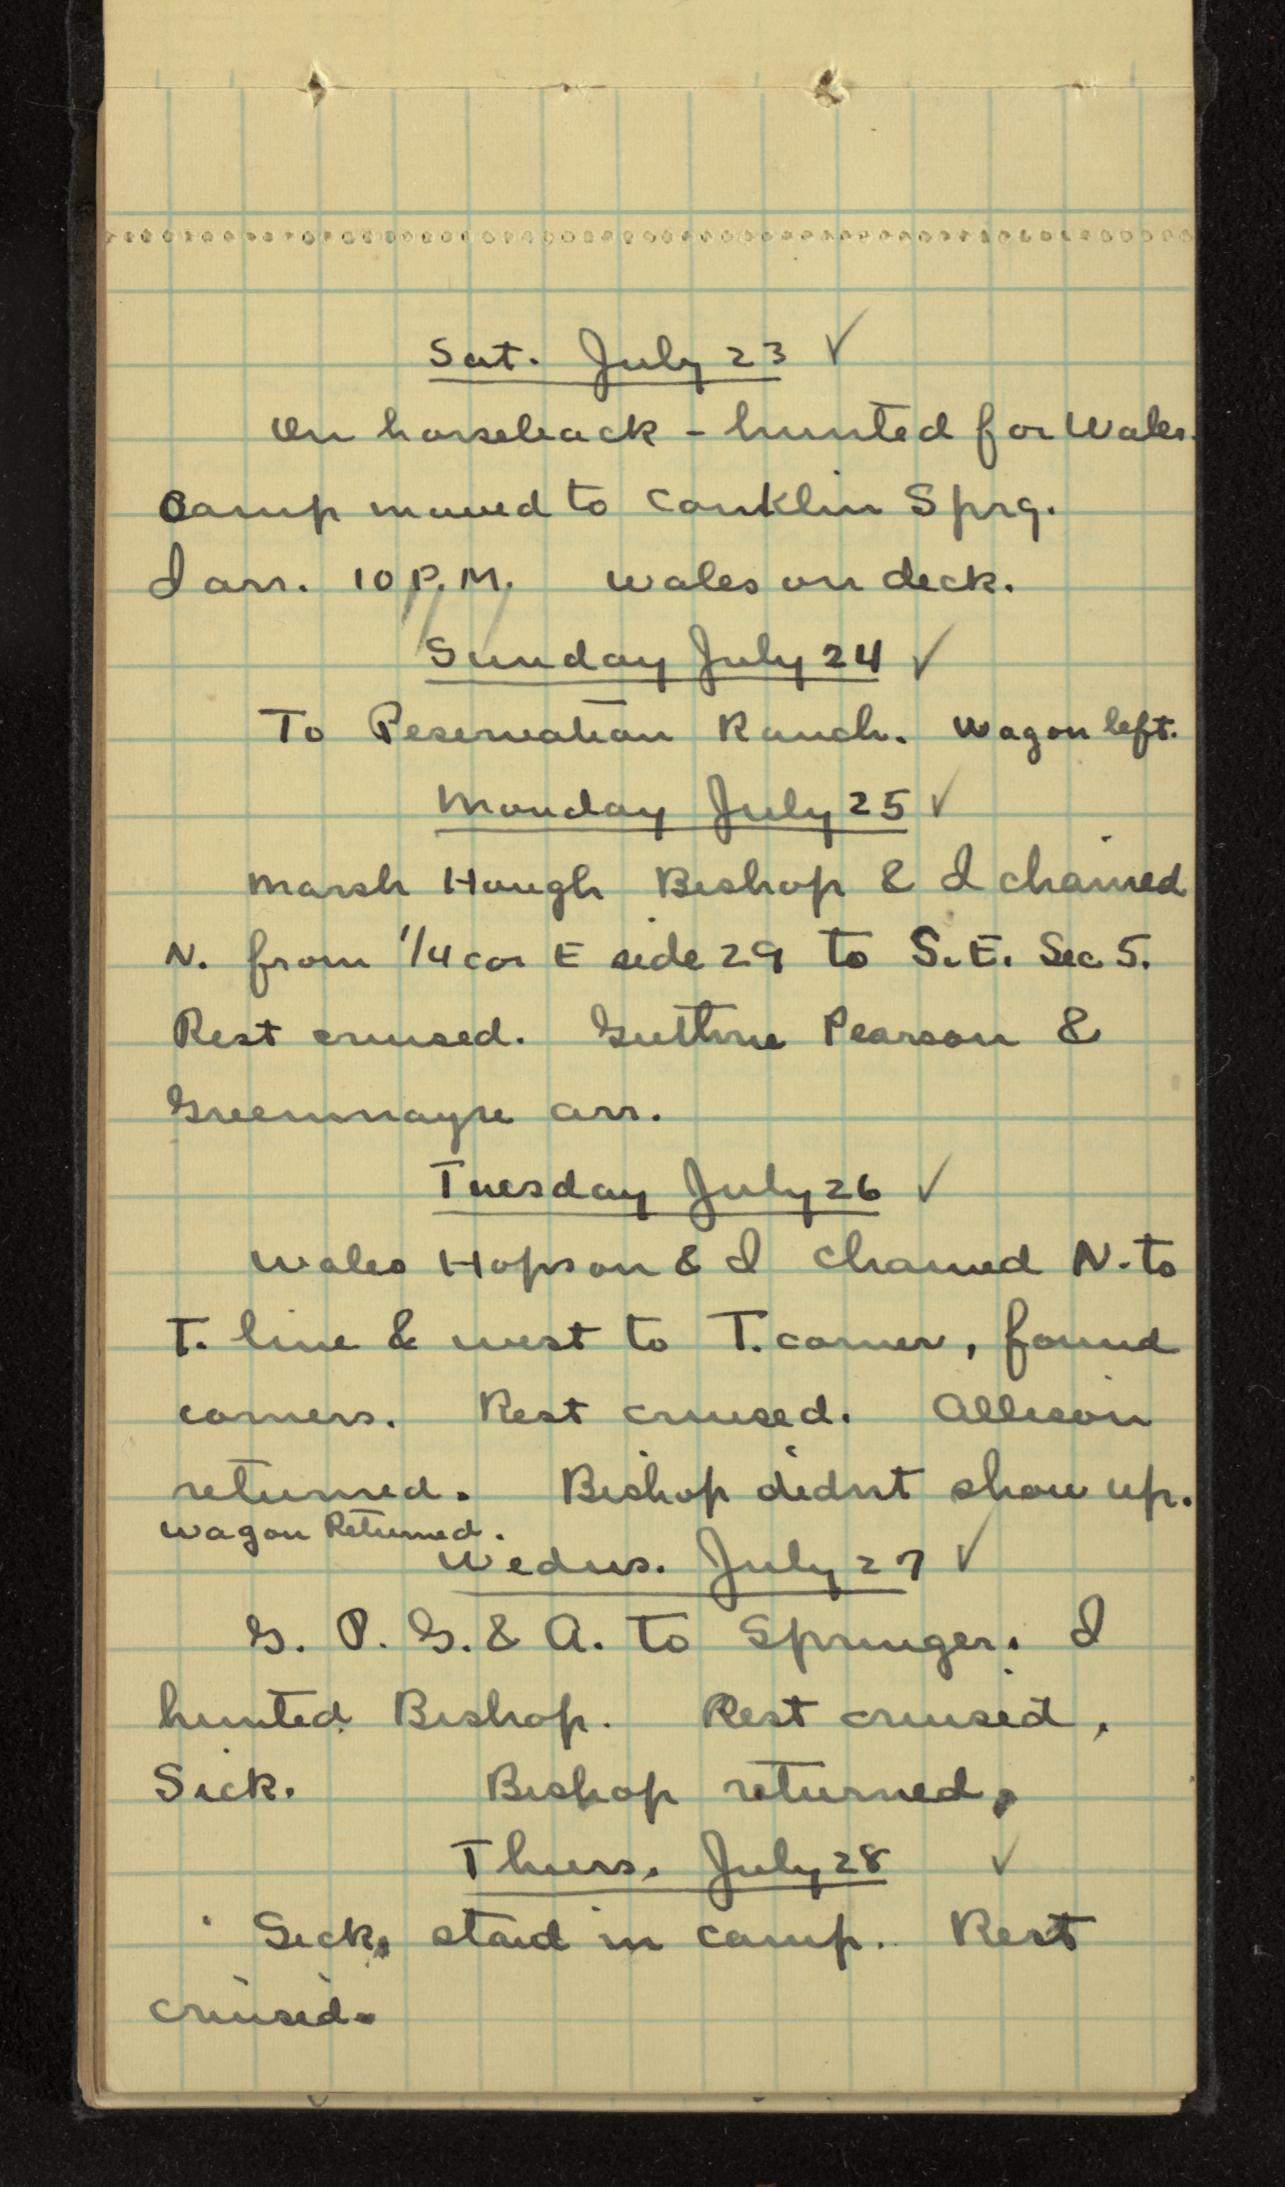 Sat. July 23 ✓
On horseback - hunted for Wales.
Camp moved to Conklin Sprg.
I arr. 10 P.M. Wales on deck.
Sunday July 24 ✓
To Reservation Ranch. Wagon left.
Monday July 25 ✓
Marsh Hough Bishop & I chained
N. from 1/4 cor E side 29 to S.E. Sec 5.
Rest cruised. Guthrie Pearson &
arr.
Tuesday July 26 ✓
Wales Hopson & I chained N. to
T. line & west to T. corner, found
corners. Rest cruised. Allison
returned. Bishop didnt show up.
Wagon Returned.
Wednes. July 27 ✓
G. P. G. & A. to Springer. I
hunted Bishop. Rest cruised,
Sick. Bishop returned.
Thurs. July 28 ✓
Sick, staid in camp. Rest
cruised.